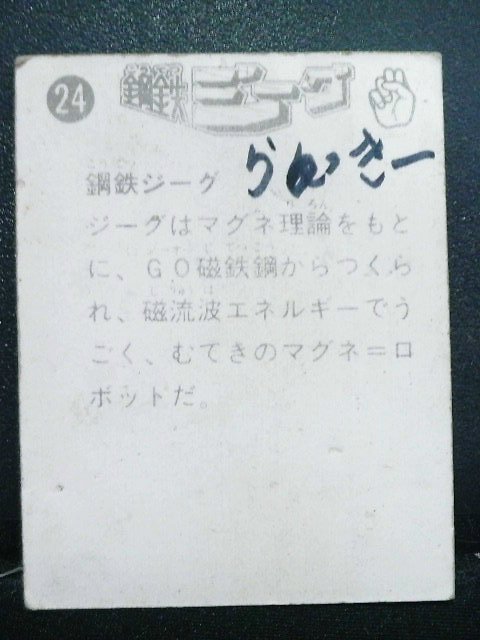 24
鋼鉄ジーグ
らっきー
鋼鉄ジーグ
ジーグはマグネ理論をもと
に、GO磁鉄鋼からつくら
れ、磁流波エネルギーでう
ごく、むてきのマグネ=ロ
ボットだ。